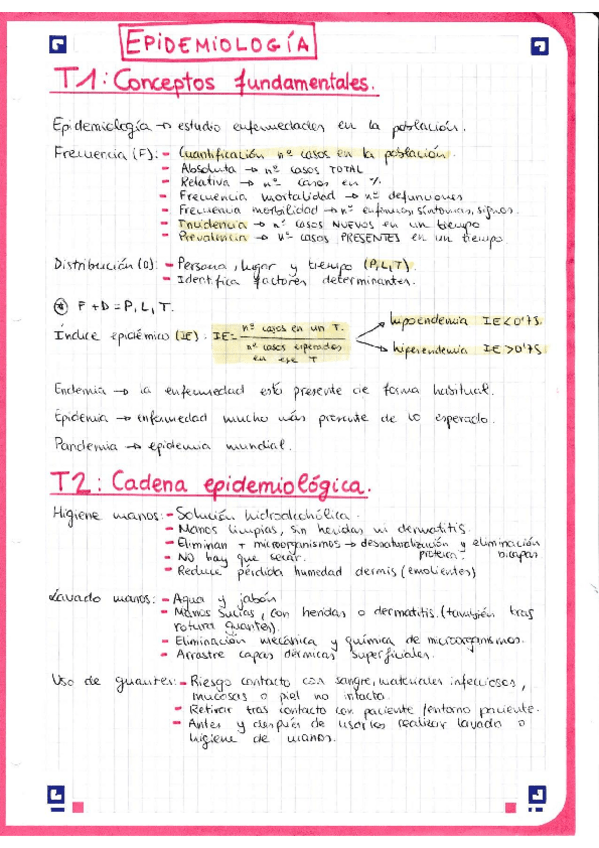 EPIDEMIOLOGÍA
T1: Conceptos fundamentales.
Epidemiología → estudio enfermedades en la población.
Frecuencia (F): - Cuantificación nº casos en la población.
- Absoluta → nº casos TOTAL
- Relativa → nº casos en %.
- Frecuencia mortalidad → nº defunciones
- Frecuencia morbilidad → nº enfermos, síntomas, signos.
- Incidencia → nº casos NUEVOS en un tiempo
- Prevalencia → nº casos PRESENTES en un tiempo
Distribución (D): - Persona, lugar y tiempo (P, L, T).
- Identifica factores determinantes.
* F + D = P, L, T.
Índice epidémico (IE): IE = nº casos en un T. / nº casos esperados en ese T
hipoendemia IE < 0'75.
hiperendemia IE > 0'75.
Endemia → la enfermedad está presente de forma habitual.
Epidemia → enfermedad mucho más presente de lo esperado.
Pandemia → epidemia mundial.
T2: Cadena epidemiológica.
Higiene manos: - Solución hidroalcohólica.
- Manos limpias, sin heridas ni dermatitis.
- Eliminan + microorganismos → desnaturalización proteica y eliminación bicapas.
- NO hay que secar.
- Reduce pérdida humedad dermis (emolientes)
Lavado manos: - Agua y jabón
- Manos sucias, con heridas o dermatitis. (también tras
rotura guantes).
- Eliminación mecánica y química de microorganismos.
- Arrastre capas dérmicas superficiales.
Uso de guantes: - Riesgo contacto con sangre, materiales infecciosos,
mucosas o piel no intacta.
- Retirar tras contacto con paciente / entorno paciente.
- Antes y después de usarlos realizar lavado o
higiene de manos.